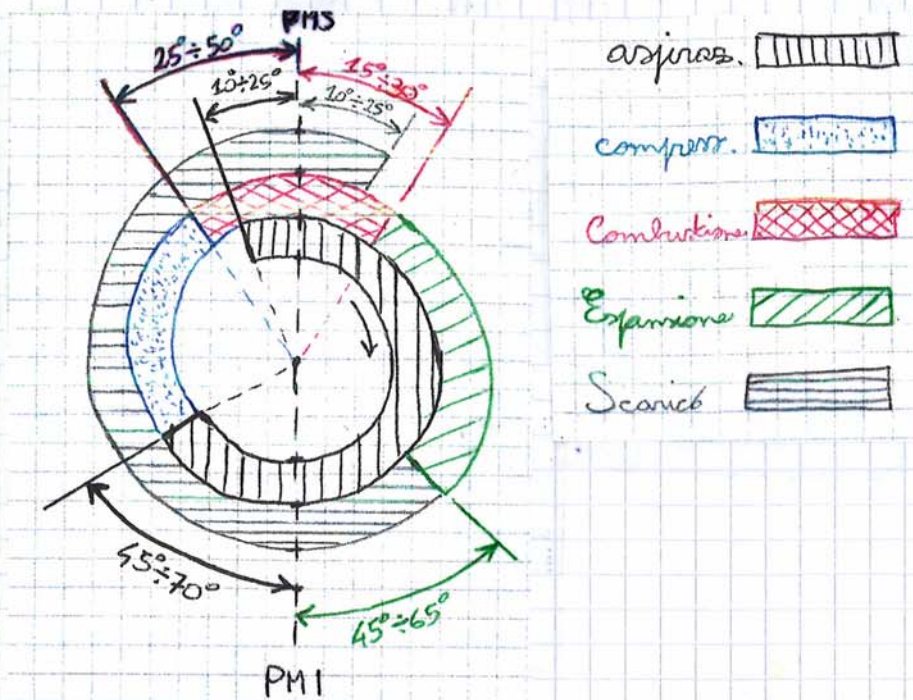 PMS
25°÷50°
15°÷30°
10÷25°
10°÷25°
45°÷70°
45°÷65°
PMI
aspiraz.
compress.
Combustione
Espansione
Scarico